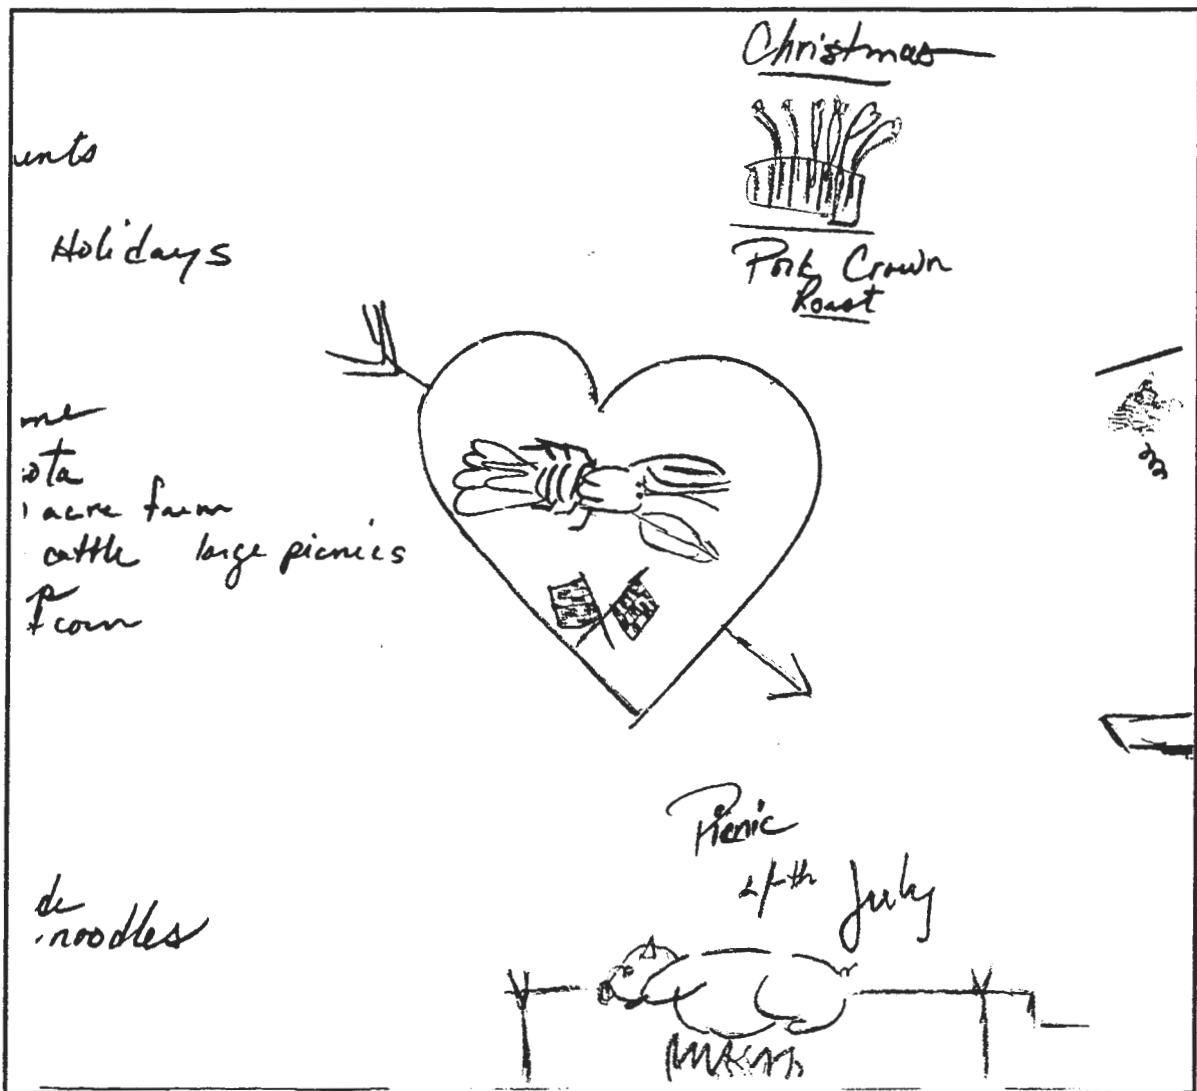 Christmas
Holidays
Pork Crown
Roast
acre farm
cattle large picnics
corn
Picnic
4th July
noodles